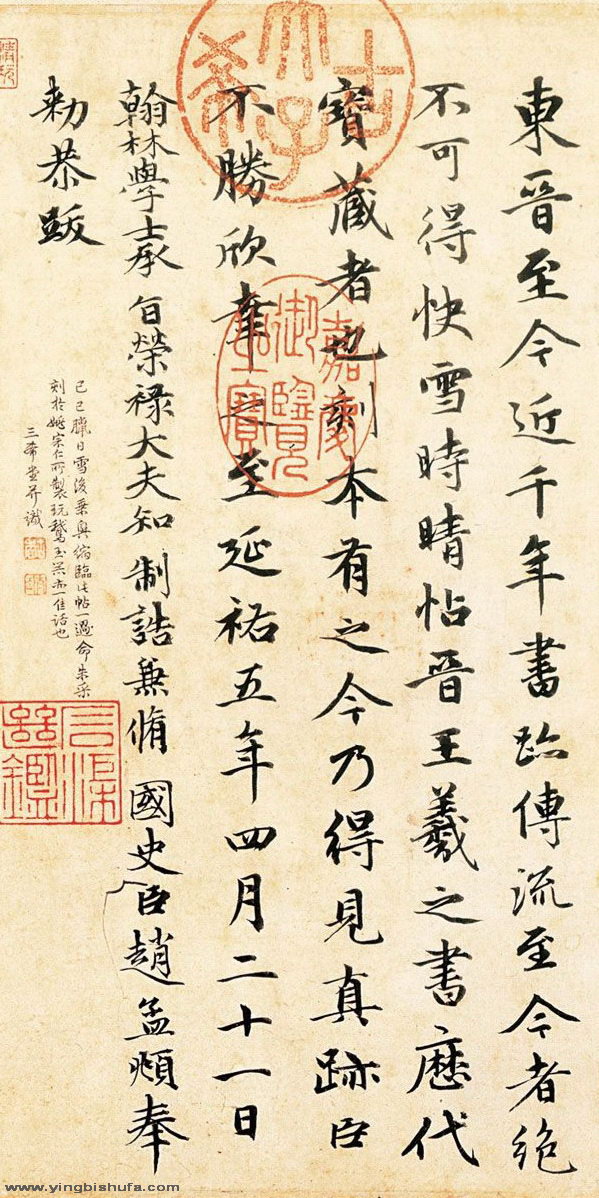 東晉至今近千年書跡傳流至今者絶
不可得快雪時晴帖晉王羲之書歷代
寶藏者也刻本有之今乃得見真跡臣
不勝欣幸之至延祐五年四月二十一日
翰林學士承旨榮祿大夫知制誥兼脩國史臣趙孟頫奉
勑恭跋
己巳臘日雪後乘興縮臨此帖一過命朱采
刻於姚宗仁所製玩鵞玉器亦一佳話也
三希堂并識
古希天子
嘉慶御覽之寶
www.yingbishufa.com